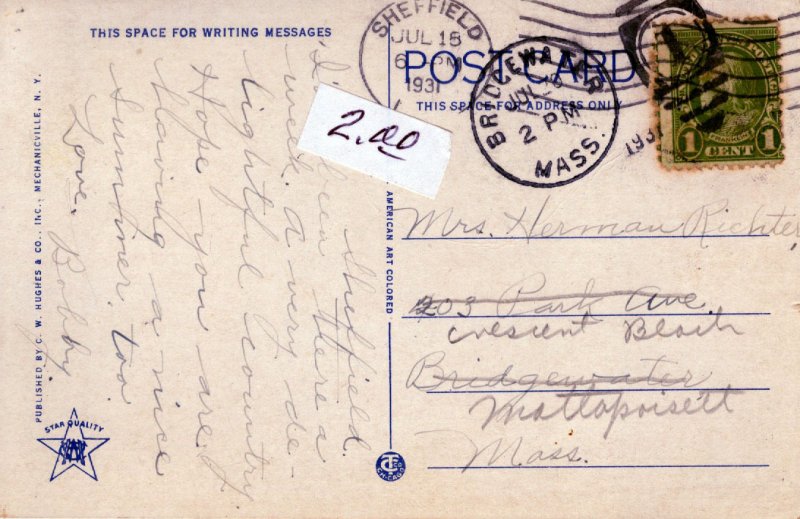 THIS SPACE FOR WRITING MESSAGES
SHEFFIELD
JUL 18
6 PM
1931
POST CARD
THIS SPACE FOR ADDRESS ONLY
BRIDGEWATER
JUL
2 PM
1931
MASS.
1 CENT 1
2.00
Sheffield.
I've been there a
week. a very de-
lightful country
Hope you are
having a nice
summer too
Love, Bobby.
Mrs. Herman Richter
203 Park Ave.
Crescent Beach
Bridgewater
Mattapoisett
Mass.
AMERICAN ART COLORED
PUBLISHED BY C. W. HUGHES & CO., INC., MECHANICVILLE, N. Y.
STAR QUALITY
CHICAGO